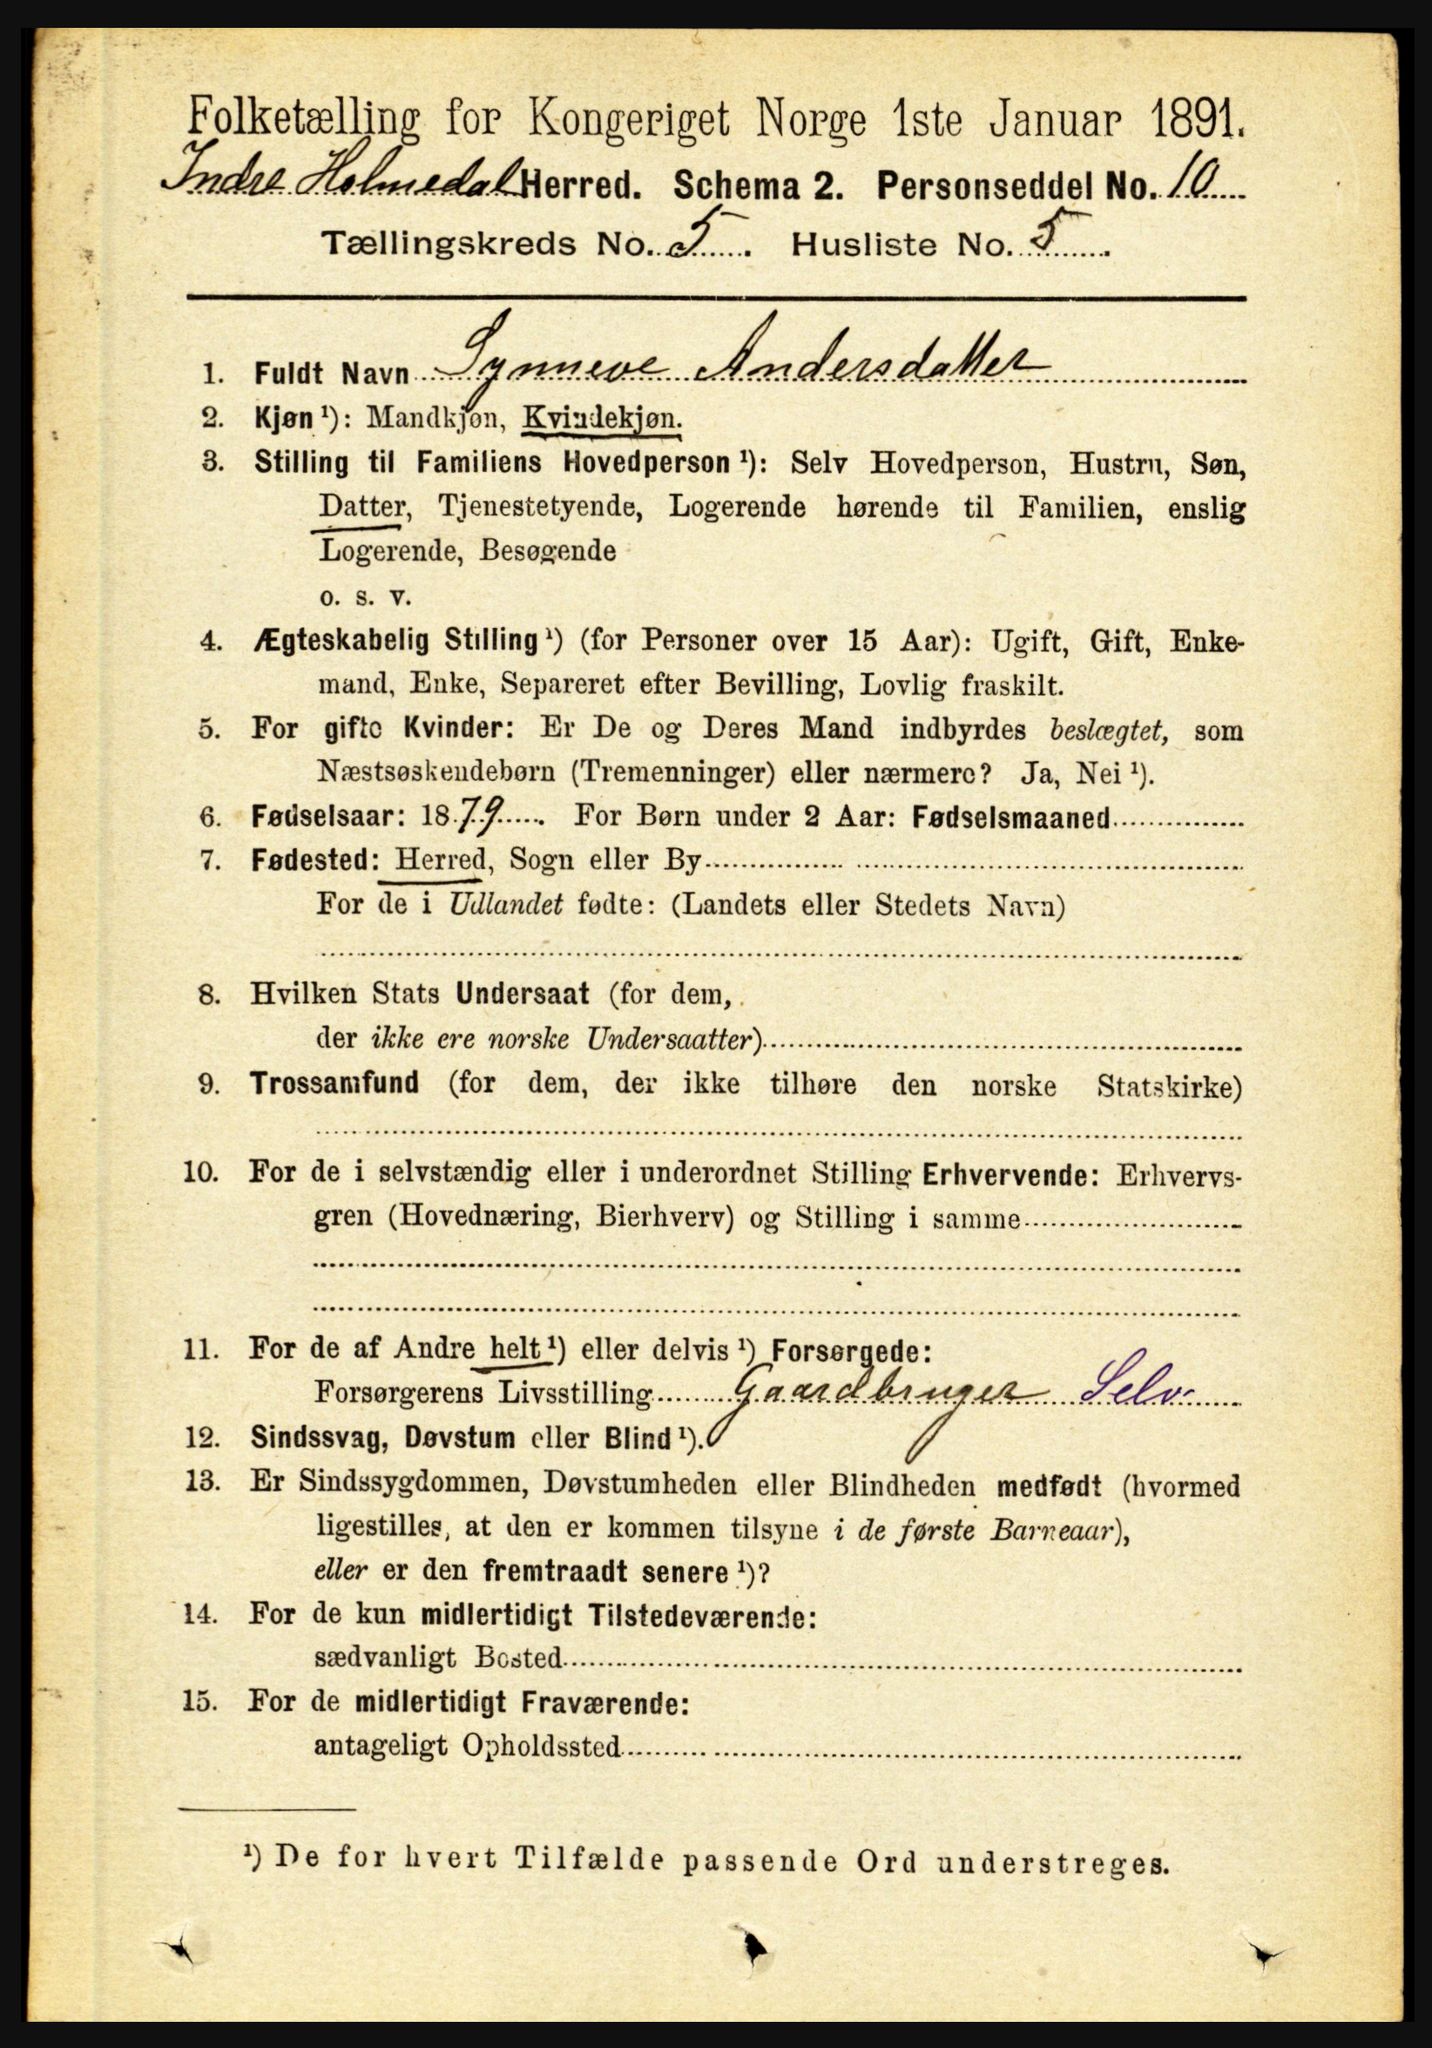 Folketælling for Kongeriget Norge 1ste Januar 1891.
Indre Holmedal Herred. Schema 2. Personseddel No. 10
Tællingskreds No. 5. Husliste No. 5
1. Fuldt Navn Synneve Andersdatter
2. Kjøn ¹): Mandkjøn, Kvindekjøn.
3. Stilling til Familiens Hovedperson ¹): Selv Hovedperson, Hustru, Søn,
Datter, Tjenestetyende, Logerende hørende til Familien, enslig
Logerende, Besøgende
o. s. v.
4. Ægteskabelig Stilling ¹) (for Personer over 15 Aar): Ugift, Gift, Enke-
mand, Enke, Separeret efter Bevilling, Lovlig fraskilt.
5. For gifte Kvinder: Er De og Deres Mand indbyrdes beslægtet, som
Næstsøskendebørn (Tremenninger) eller nærmere? Ja, Nei ¹).
6. Fødselsaar: 1879. For Børn under 2 Aar: Fødselsmaaned
7. Fødested: Herred, Sogn eller By
For de i Udlandet fødte: (Landets eller Stedets Navn)
8. Hvilken Stats Undersaat (for dem,
der ikke ere norske Undersaatter)
9. Trossamfund (for dem, der ikke tilhøre den norske Statskirke)
10. For de i selvstændig eller i underordnet Stilling Erhvervende: Erhvervs-
gren (Hovednæring, Bierhverv) og Stilling i samme
11. For de af Andre helt ¹) eller delvis ¹) Forsørgede:
Forsørgerens Livsstilling Gaardbruger Selv.
12. Sindssvag, Døvstum eller Blind ¹).
13. Er Sindssygdommen, Døvstumheden eller Blindheden medfødt (hvormed
ligestilles, at den er kommen tilsyne i de første Barneaar),
eller er den fremtraadt senere ¹)?
14. For de kun midlertidigt Tilstedeværende:
sædvanligt Bosted
15. For de midlertidigt Fraværende:
antageligt Opholdssted
¹) De for hvert Tilfælde passende Ord understreges.